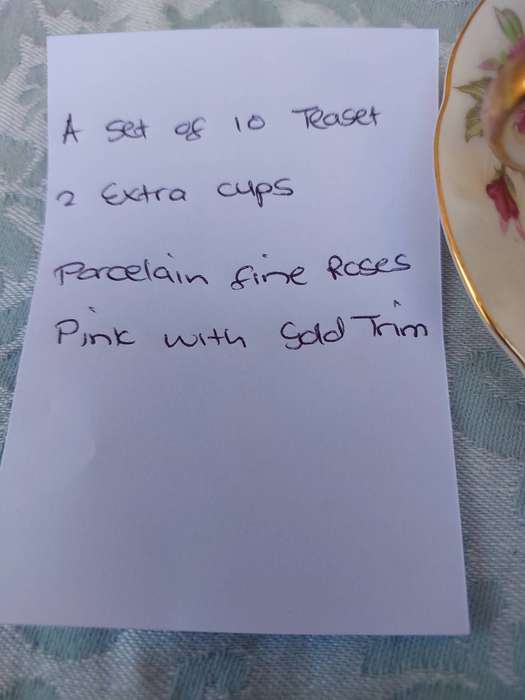 A set of 10 Teaset
2 Extra cups
Porcelain fine Roses
Pink with Gold Trim